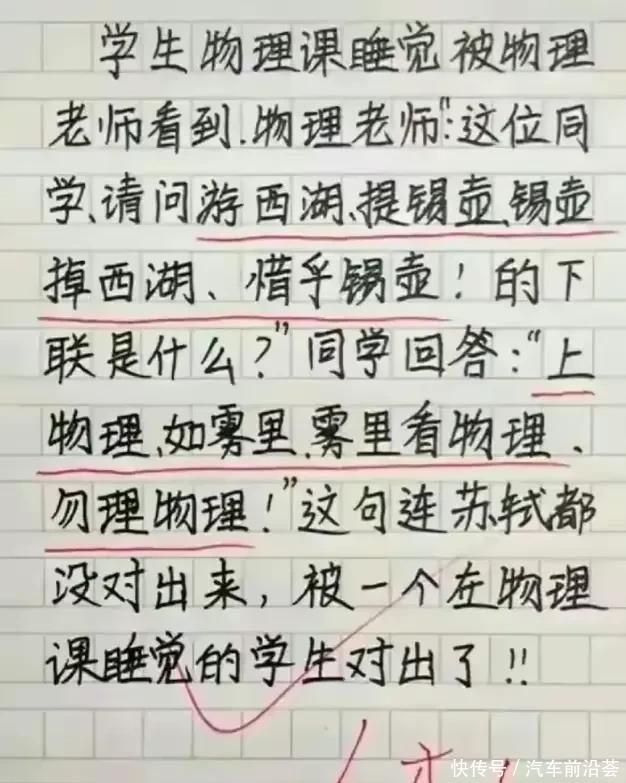 学生物理课睡觉被物理
老师看到.物理老师“:这位同
学、请问游西湖、提锡壶、锡壶
掉西湖、惜乎锡壶!的下
联是什么?”同学回答:“上
物理、如雾里、雾里看物理、
勿理物理!”这句连苏轼都
没对出来,被一个在物理
课睡觉的学生对出了!!
快传号/汽车前沿荟